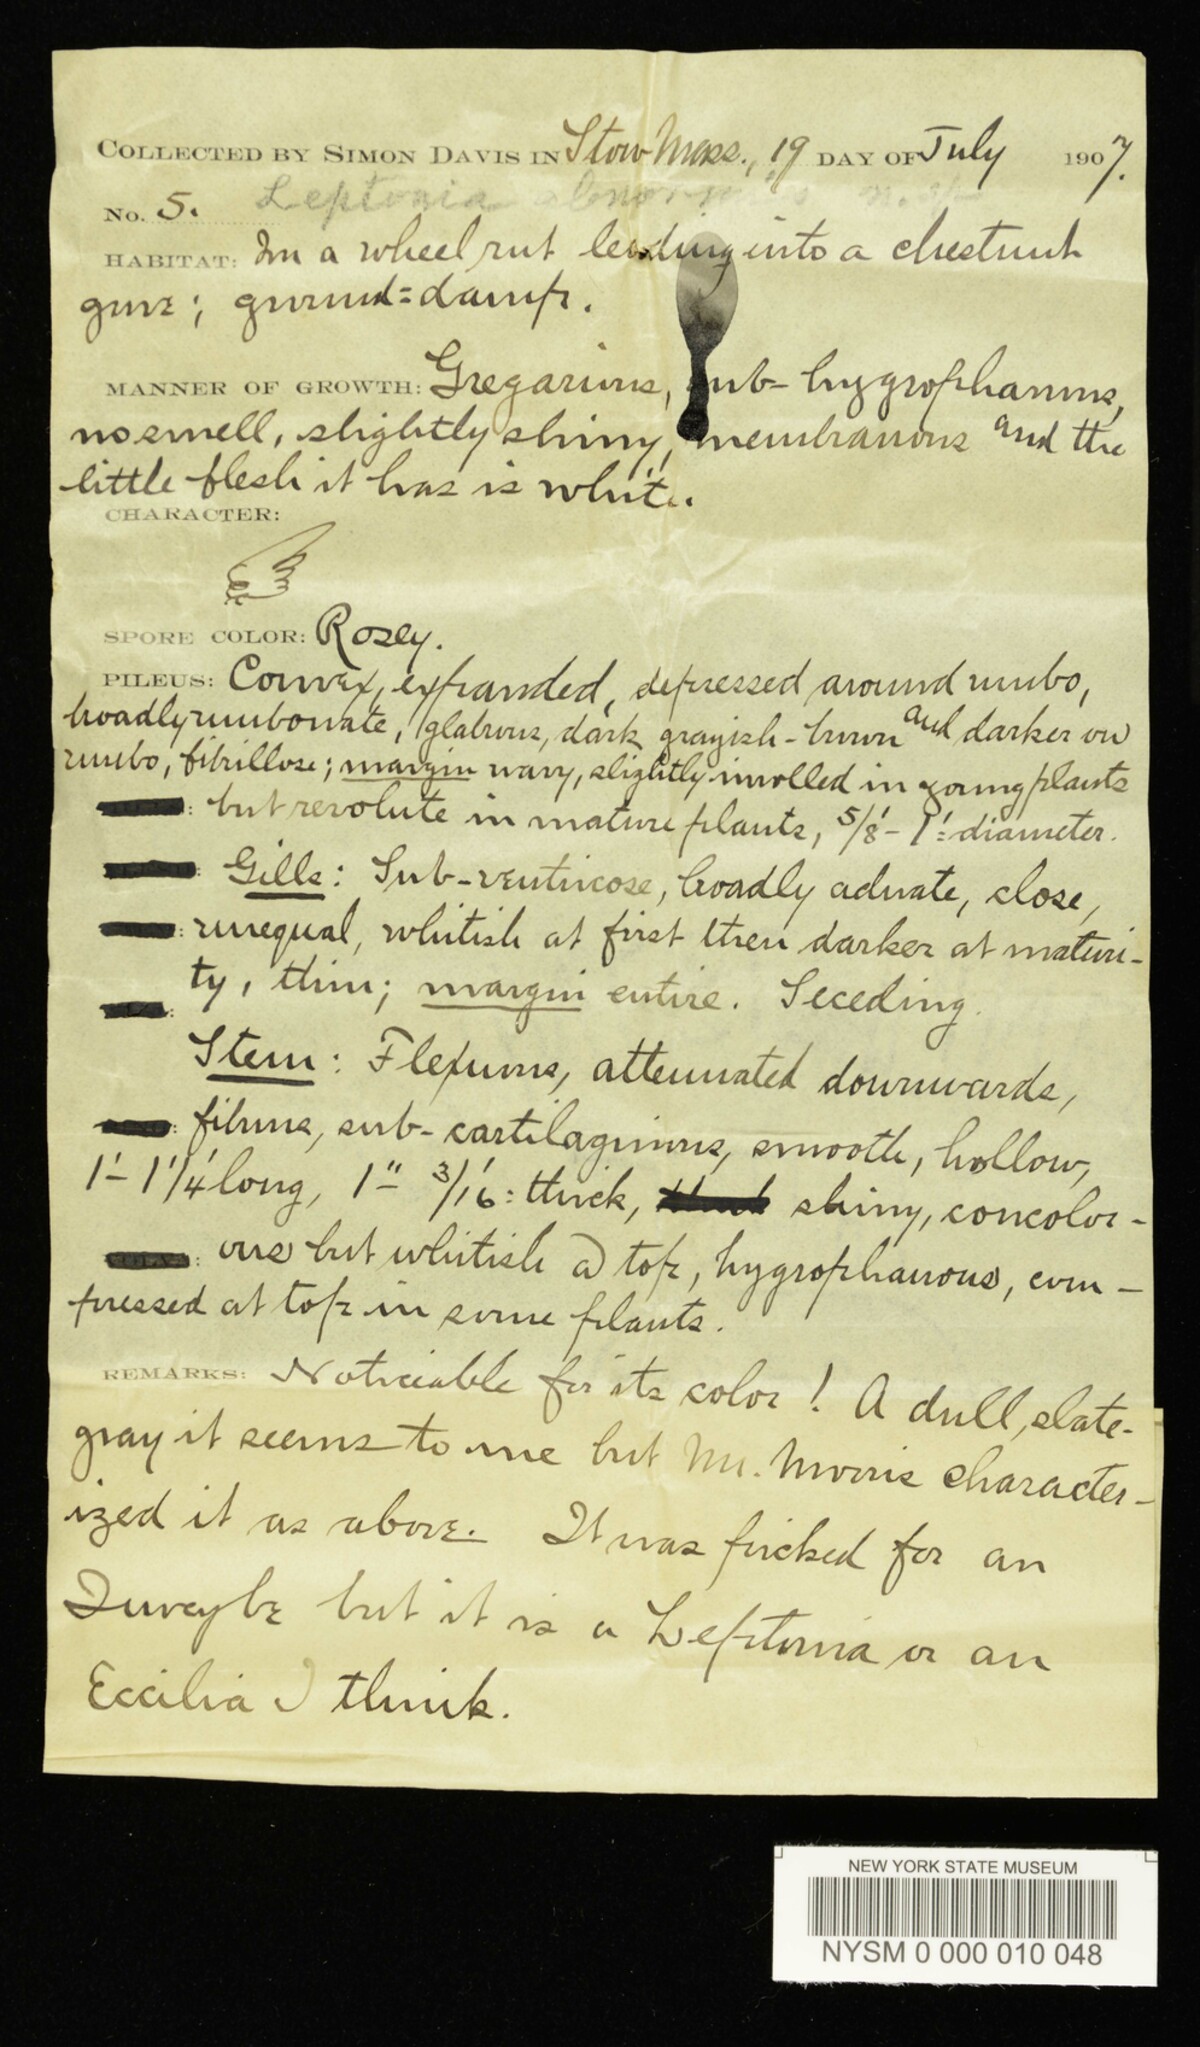 COLLECTED BY SIMON DAVIS IN Stow Mass., 19 DAY OF July 1907.
No. 5. Leptonia
HABITAT: In a wheel rut leading into a chestnut
grove; ground=damp.
MANNER OF GROWTH: Gregarious, sub-hygrophanous,
no smell, slightly shiny, membranous and the
little flesh it has is white.
CHARACTER:
SPORE COLOR: Rosey.
PILEUS: Convex, expanded, depressed around umbo,
broadly umbonate, glabrous, dark grayish-brown and darker on
umbo, fibrillose; margin wavy, slightly inrolled in young plants
: but revolute in mature plants, 5/8'-1'= diameter.
: Gills: Sub-ventricose, broadly adnate, close,
: unequal, whitish at first then darker at maturi-
ty, thin; margin entire. Seceding.
Stem: Flexuous, attenuated downwards,
: fibrous, sub-cartilaginous, smooth, hollow,
1'-1 1/4' long, 1"-3/16'= thick, shiny, concolor-
: ous but whitish @ top, hygrophanous, com-
pressed at top in some plants.
REMARKS: Noticiable for its color! A dull, slate-
gray it seems to me but Mr. Morris character-
ized it as above. It was picked for an
Inocybe but it is a Leptonia or an
Eccilia I think.
NEW YORK STATE MUSEUM
NYSM 0 000 010 048